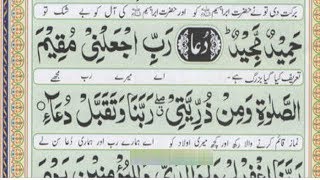 برکت دی تو نے حضرت ابراہیم کو اور حضرت ابراہیم کی آل کو بے شک تو
حَمِيْدٌ مَّجِيْدٌ دُعا رَبِّ اجْعَلْنِيْ مُقِيْمَ
تعریف کیا گیا بزرگ ہے۔ اے میرے رب مجھے
الصَّلٰوةِ وَمِنْ ذُرِّيَّتِيْ رَبَّنَا وَتَقَبَّلْ دُعَآءِ
نماز قائم کرنے والا رکھ اور کچھ میری اولاد کو اے ہمارے رب اور ہماری دعا سن لے